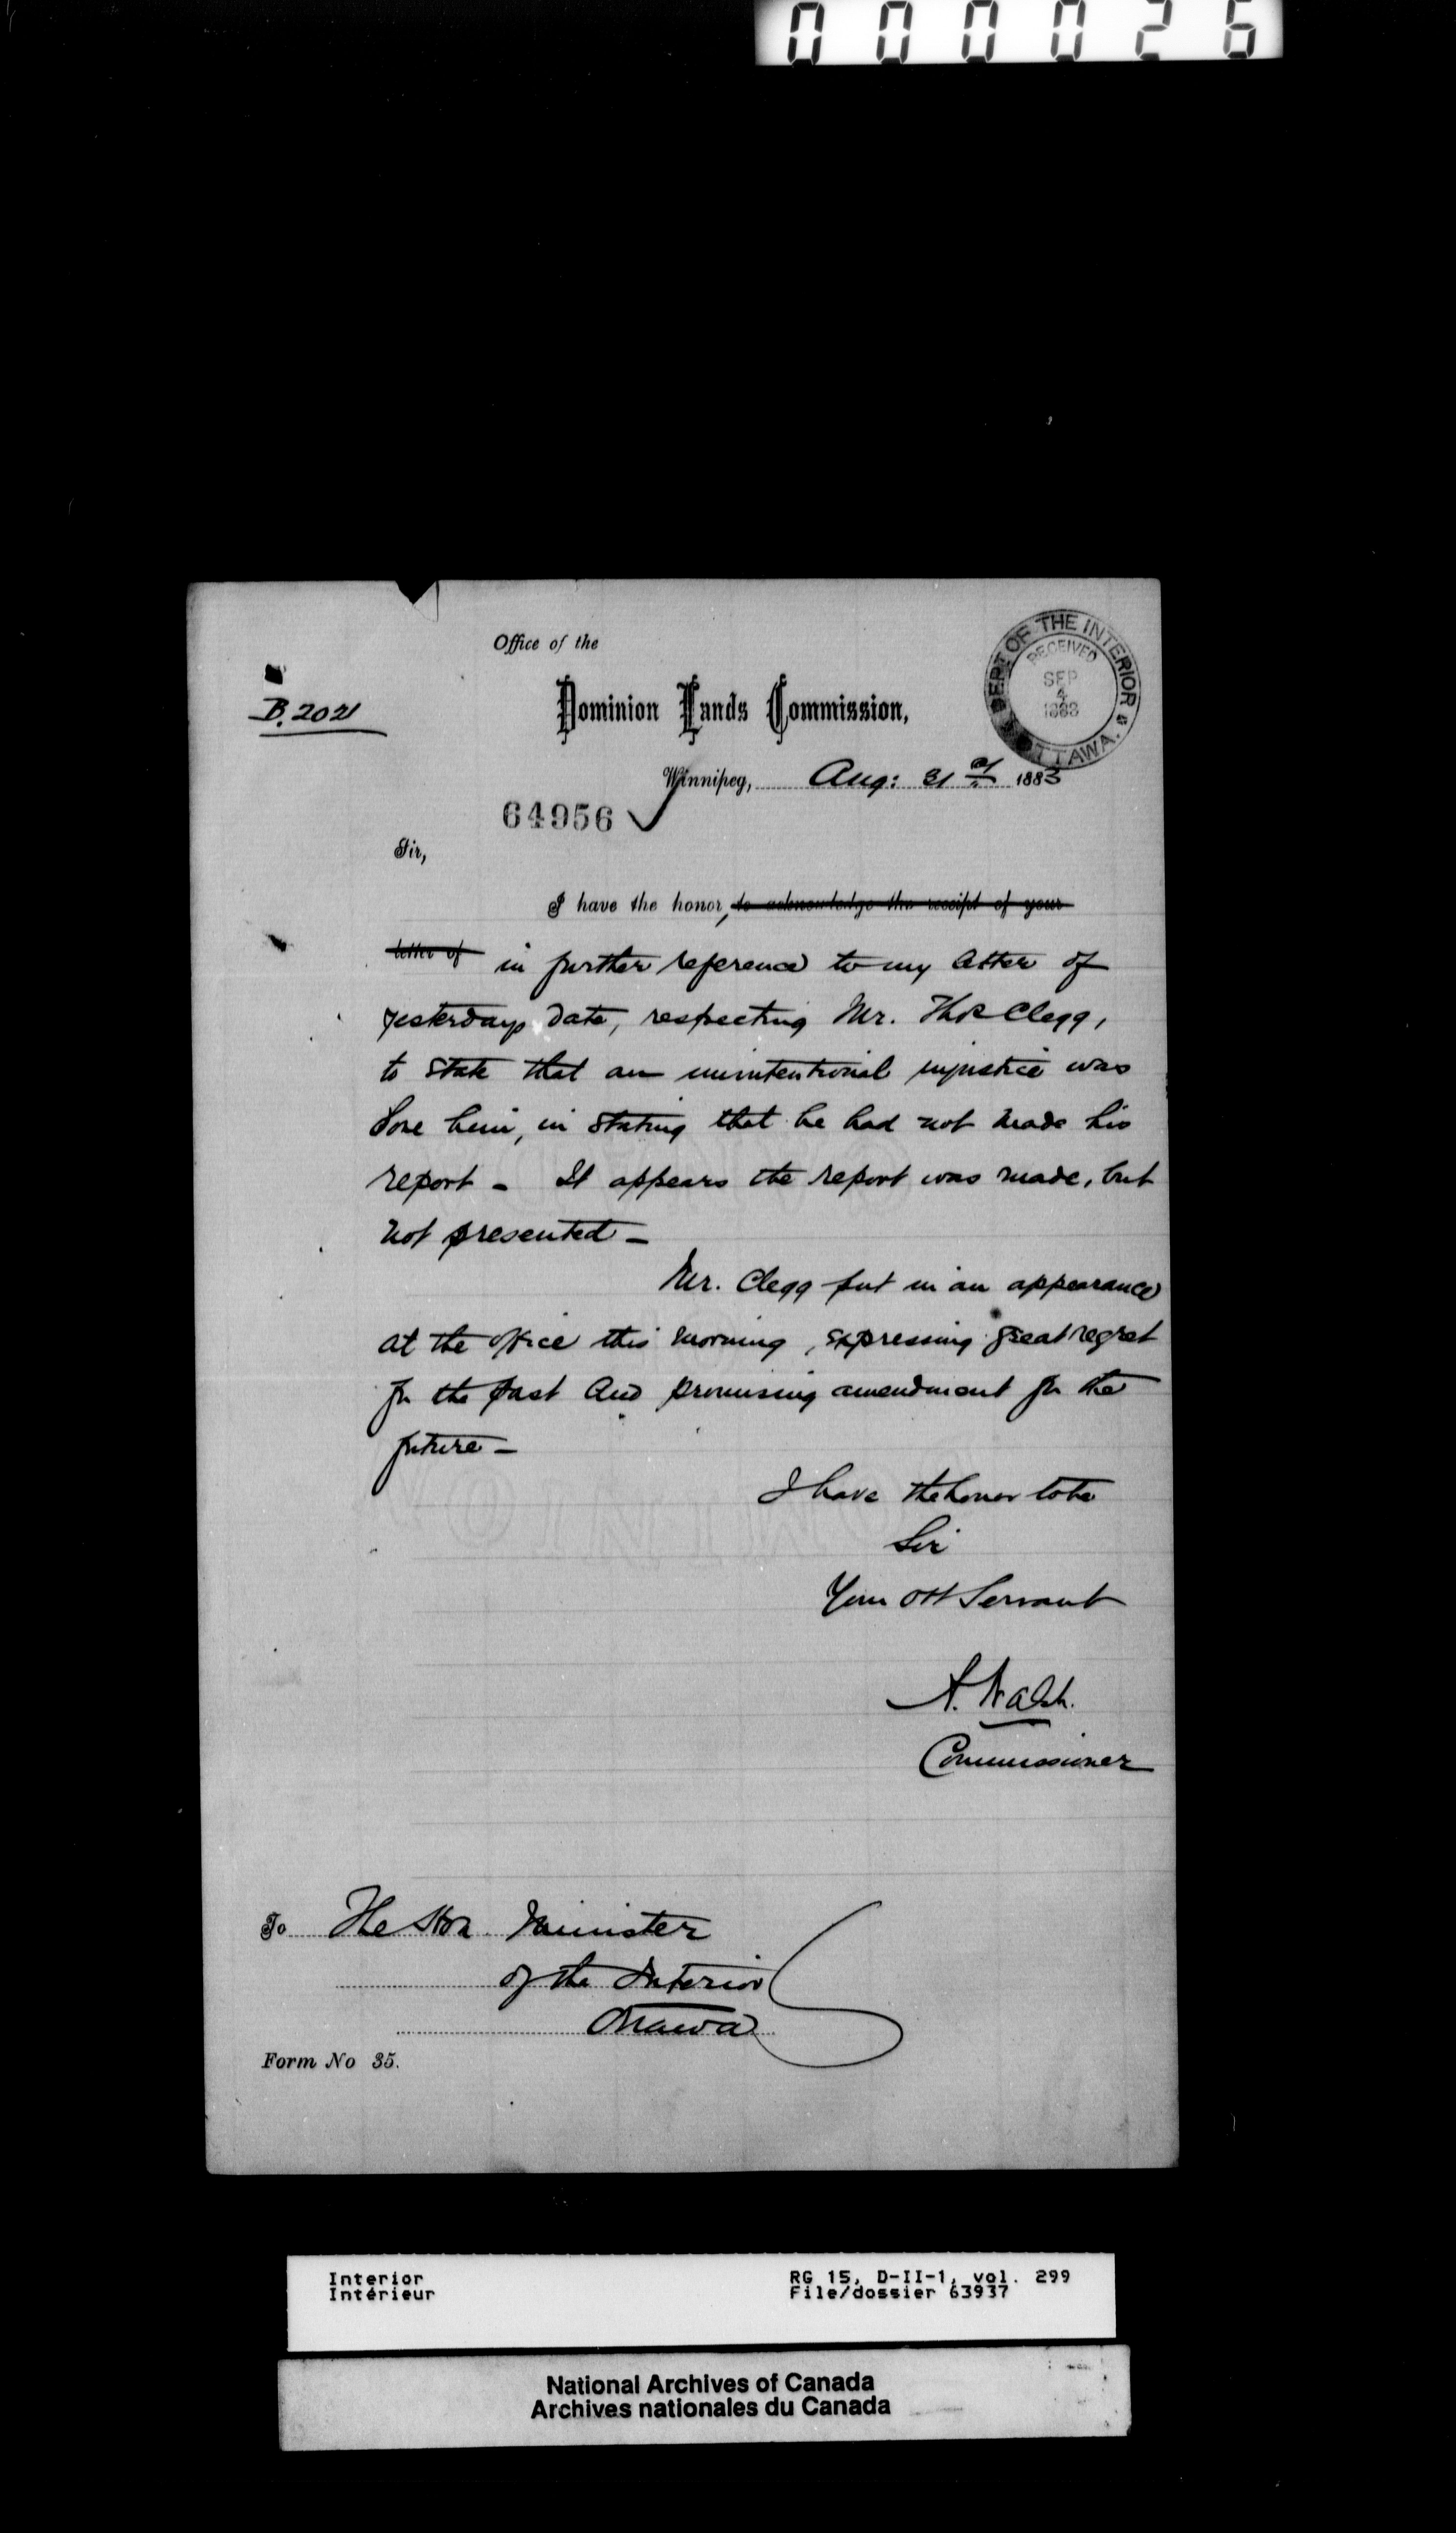 000026
Office of the
Dominion Lands Commission,
B. 2021
DEPT OF THE INTERIOR
OTTAWA.
RECEIVED
SEP
4
1883
Winnipeg, Aug: 31st 1883
64956
Sir,
I have the honor, to acknowledge the receipt of your
letter of in further reference to my letter of
yesterdays date, respecting Mr. Thos Clegg,
to state that an unintentional injustice was
done him, in stating that he had not made his
report - It appears the report was made, but
not presented -
Mr. Clegg put in an appearance
at the office this morning, expressing great regret
for the past and promising amendment for the
future -
I have the honor to be
Sir
Your Obt Servant
A. Walsh.
Commissioner
To The Hon. Minister
of the Interior
Ottawa
Form No 35.
Interior
Intérieur
RG 15, D-II-1, vol. 299
File/dossier 63937
National Archives of Canada
Archives nationales du Canada